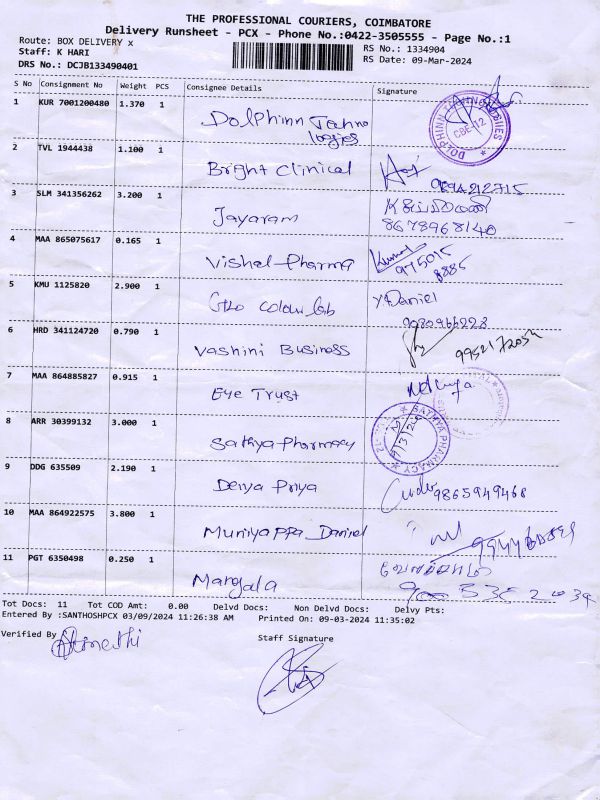 THE PROFESSIONAL COURIERS, COIMBATORE
Delivery Runsheet - PCX - Phone No.:0422-3505555 - Page No.:1
Route: BOX DELIVERY x
RS No.: 1334904
Staff: K HARI
RS Date: 09-Mar-2024
DRS No.: DCJB133490401
S No Consignment No Weight PCS Consignee Details Signature
1 KUR 7001200480 1.370 1 Dolphinn Techno
logies
DOLPHINN TECHNOLOGIES CBE-12
2 TVL 1944438 1.100 1 Bright Clinical
9894212715
3 SLM 341356262 3.200 1 Jayaram
8678968140
4 MAA 865075617 0.165 1 Vishal Pharma Kumar
975015
8885
5 KMU 1125820 2.900 1 Colour Lab Y Daniel
9080966228
6 HRD 341124720 0.790 1 Vashini Business
7 MAA 864885827 0.915 1 Eye Trust
8 ARR 30399132 3.000 1 Sathya Pharmacy
SATHYA PHARMACY
9 DDG 635509 2.190 1 Deiya Priya
9865949468
10 MAA 864922575 3.800 1 Muniyappa Daniel
11 PGT 6350498 0.250 1 Mangala
Tot Docs: 11 Tot COD Amt: 0.00 Delvd Docs: Non Delvd Docs: Delvy Pts:
Entered By :SANTHOSHPCX 03/09/2024 11:26:38 AM Printed On: 09-03-2024 11:35:02
Verified By
Staff Signature